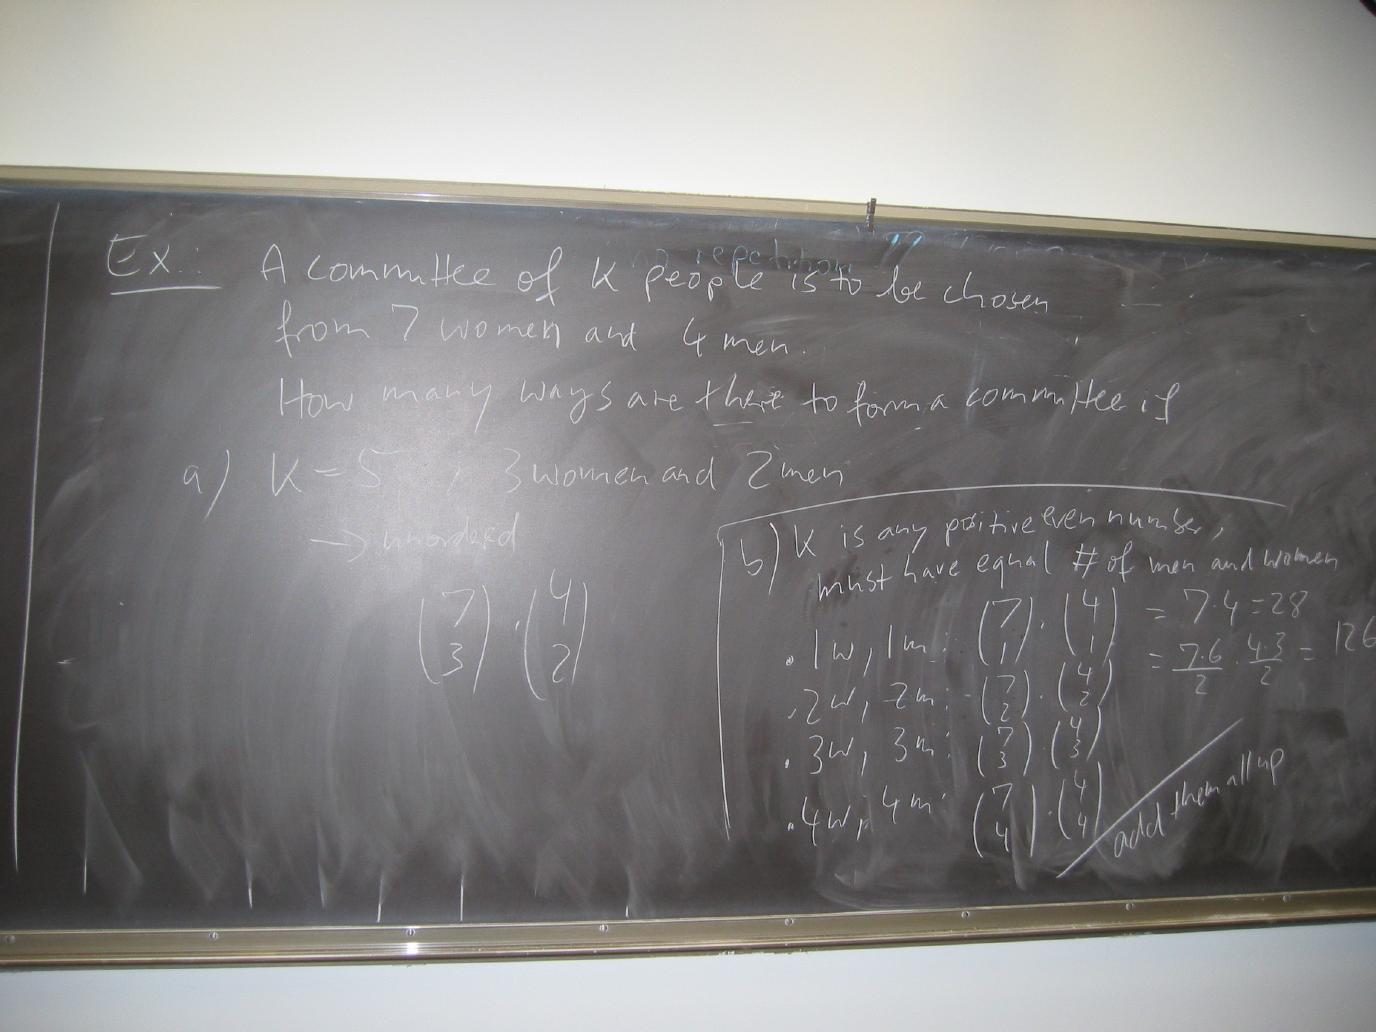 no repetition
Ex: A committee of K people is to be chosen
from 7 women and 4 men.
How many ways are there to form a committee if
a) K = 5, 3 women and 2 men
→ unordered
(7 3) · (4 2)
b) K is any positive even number,
must have equal # of men and women
. 1w, 1m: (7 1) · (4 1) = 7·4 = 28
. 2w, 2m: (7 2) · (4 2) = 7·6/2 · 4·3/2 = 126
. 3w, 3m: (7 3) · (4 3)
. 4w, 4m: (7 4) · (4 4)
add them all up